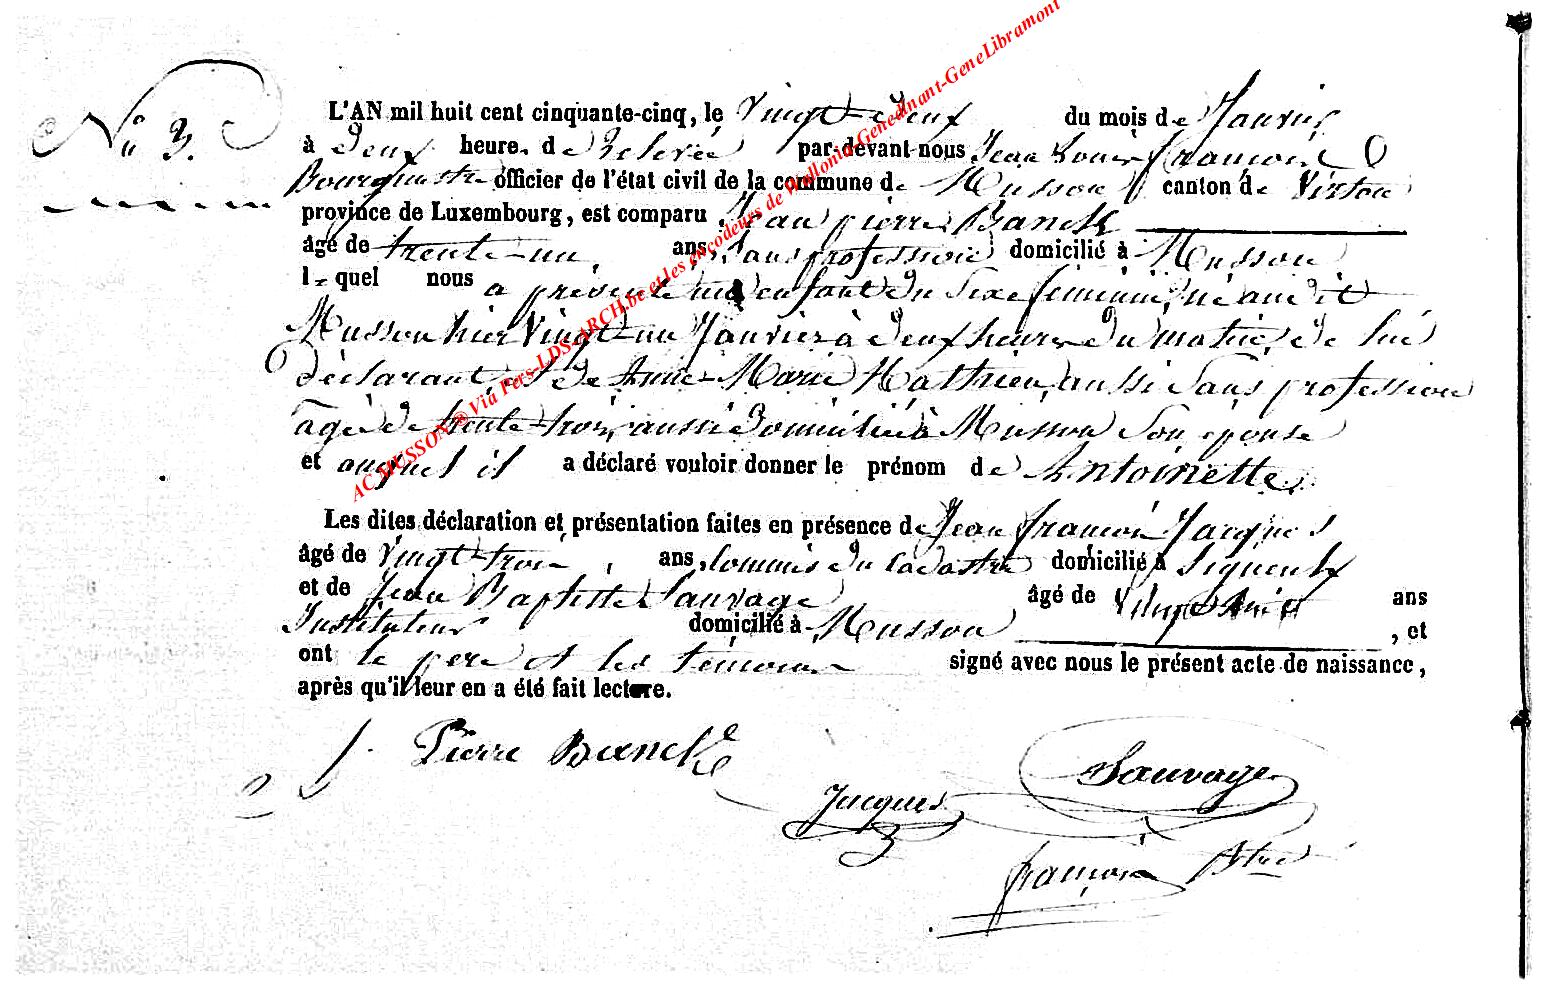 N° 3.
L'AN mil huit cent cinquante-cinq, le Vingt-deux du mois de Janvier
à deux heure. de Relevée par-devant nous Jean Louis françois
Bourgmestre officier de l'état civil de la commune de Musson canton de Virton
province de Luxembourg, est comparu Jean pierre Banck
âgé de trente-un ans, Sans profession domicilié à Musson
l-quel nous a présenté un enfant du Sexe féminin, né au dit
Musson hier Vingt-un Janvier à deux heures du matin, de lui
déclarant, et de Anne-Marie Mathieu, aussi Sans profession
agée de trente-trois, aussi Domiciliée à Musson Son épouse
et auquel il a déclaré vouloir donner le prénom de Antoinette
Les dites déclaration et présentation faites en présence de Jean françois Jacques
âgé de Vingt-trois, ans, Commis du Cadastre domicilié à Signeulx
et de Jean Baptiste Sauvage âgé de Vingt huit ans
Instituteur domicilié à Musson, et
ont le pere et les témoins signé avec nous le présent acte de naissance,
après qu'il leur en a été fait lecture.
J. Pierre Banck
Sauvage
Jacques
françois Btre
AC MUSSON ® Via Pers-LDS-ARCH.be et les encodeurs de Wallonia-Genedinant-GeneLibramont